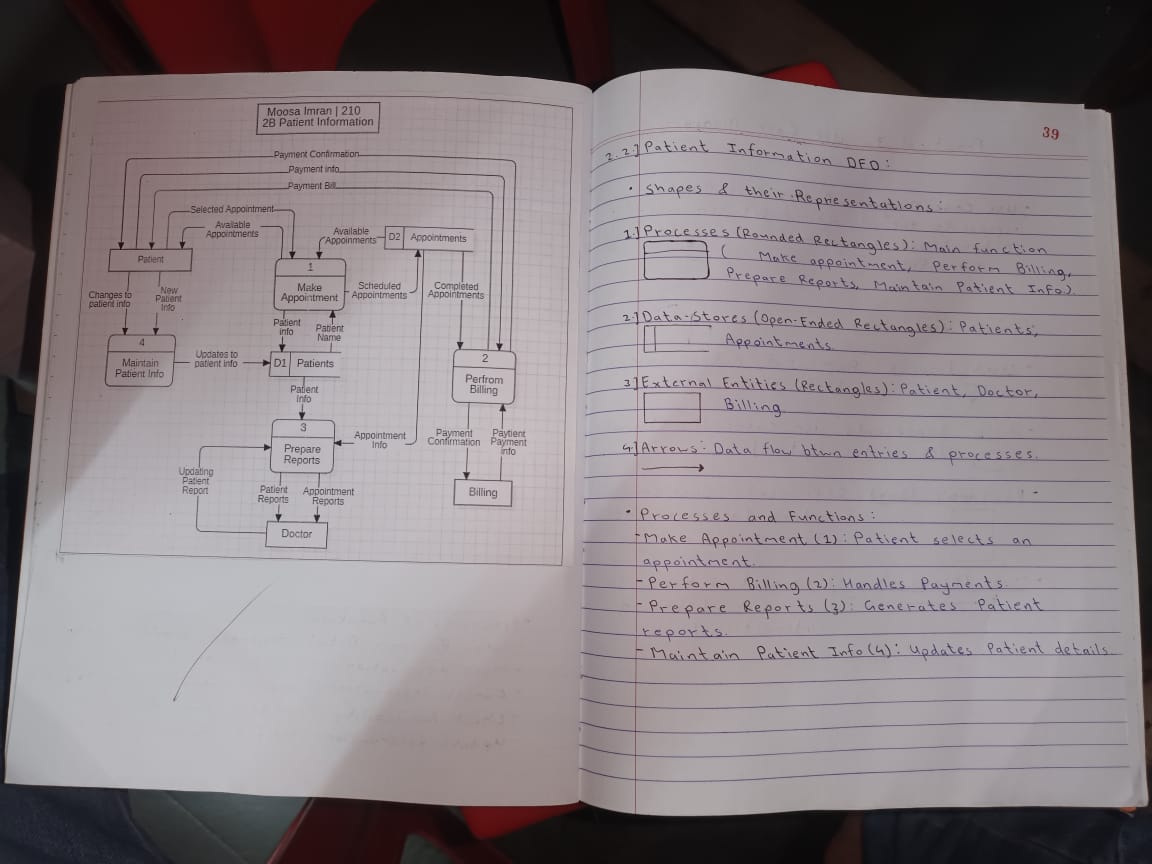 Moosa Imran | 210
2B Patient Information
Payment Confirmation
Payment info
Payment Bill
Selected Appointment
Available
Appointments
Available
Appoinments
D2 Appointments
Patient
1
Make
Appointment
Scheduled
Appointments
Completed
Appointments
Changes to
patient info
New
Patient
Info
Patient
info
Patient
Name
4
Maintain
Patient Info
Updates to
patient info
D1 Patients
2
Perfrom
Billing
Patient
Info
3
Prepare
Reports
Appointment
Info
Payment
Confirmation
Paytient
Payment
info
Updating
Patient
Report
Patient
Reports
Appointment
Reports
Billing
Doctor
39
2.2.] Patient Information DFD:
• Shapes & their Representations:
1.] Processes (Rounded Rectangles): Main function
( Make appointment, Perform Billing,
Prepare Reports, Maintain Patient Info).
2.] Data-Stores (Open-Ended Rectangles): Patients,
Appointments
3] External Entities (Rectangles): Patient, Doctor,
Billing
4] Arrows: Data flow btwn entries & processes.
• Processes and Functions:
- Make Appointment (1): Patient selects an
appointment.
- Perform Billing (2): Handles Payments
- Prepare Reports (3): Generates Patient
reports.
- Maintain Patient Info (4): Updates Patient details.